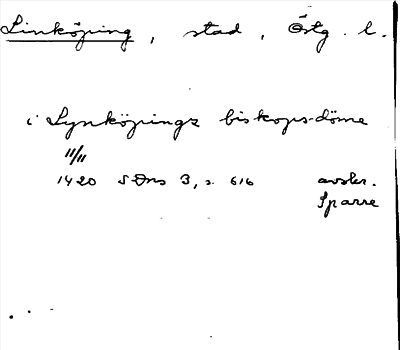 Linköping, stad, Östg. l.
i Lynköpings biskops-döme
11/11
1420 SDns 3, s. 616 avskr.
Sparre